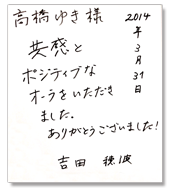 高橋ゆき様
2014年3月31日
共感と
ポジティブな
オーラをいただき
ました。
ありがとうございました!
吉田 穂波